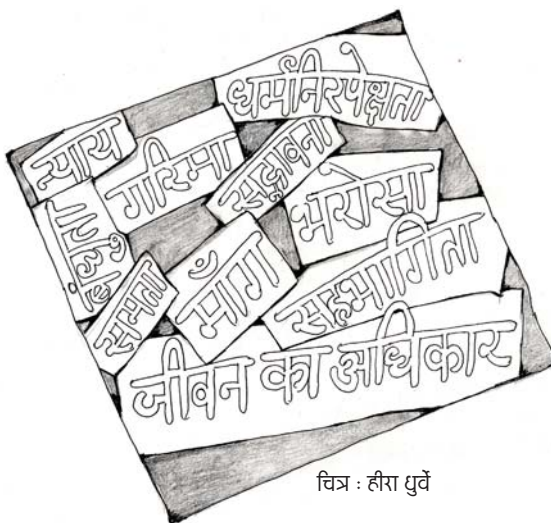 धर्मनिरपेक्षता
न्याय
गरिमा
सद्भावना
भरोसा
समता
माँग
सहभागिता
जीवन का अधिकार
चित्र : हीरा धुर्वे